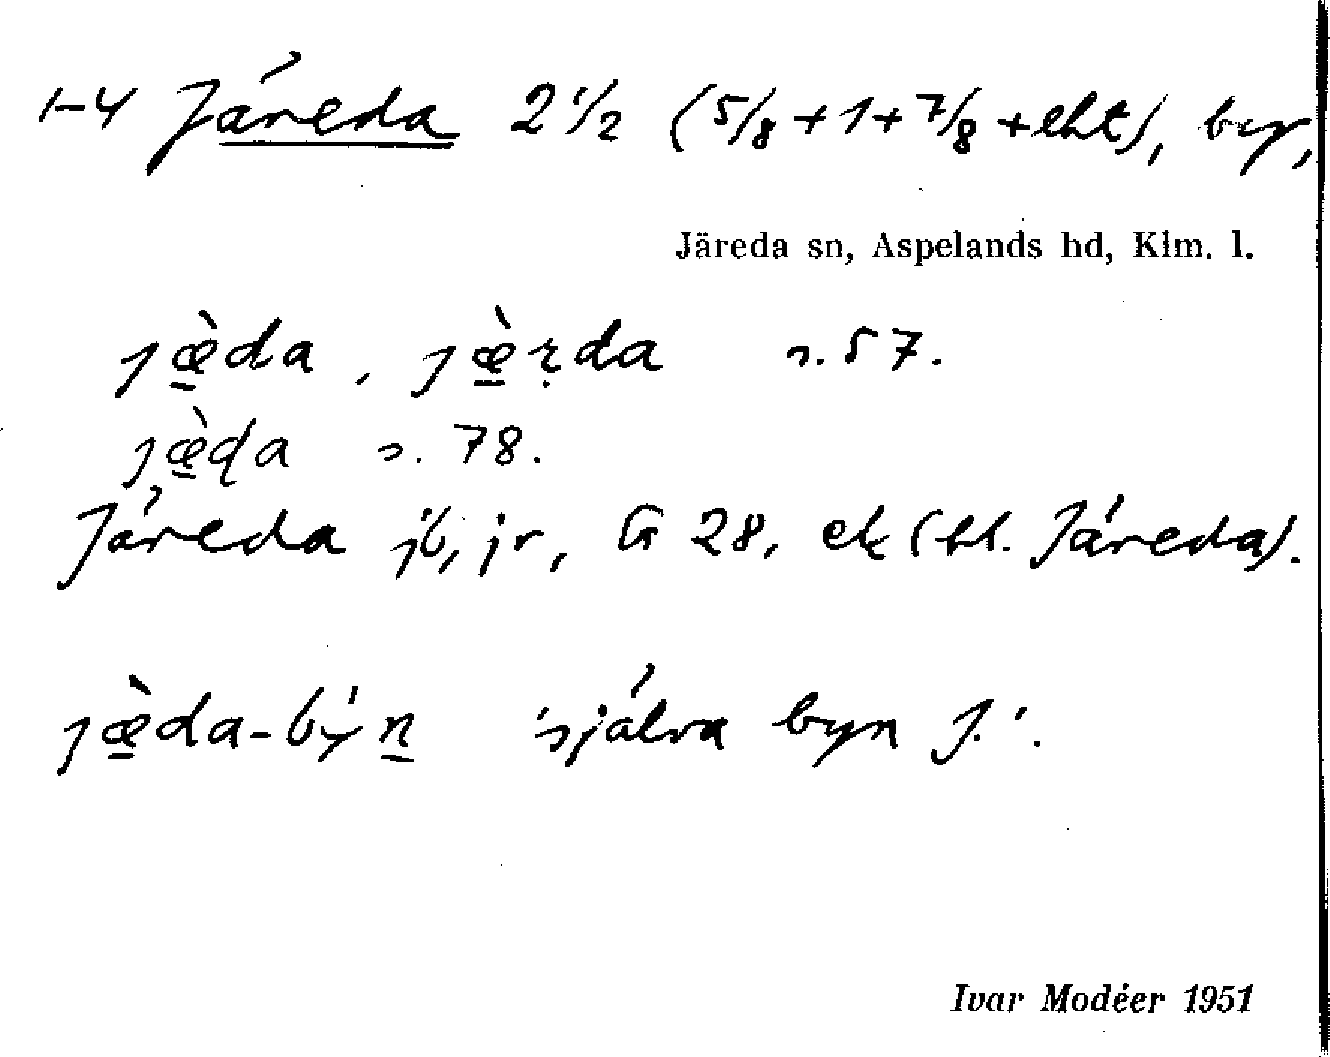 1–4 Järeda 2 1/2 (5/8 + 1 + 7/8 + eht), by,
Järeda sn, Aspelands hd, Klm. l.
jæ̠̀da, jæ̠̀ṛda s. 57.
jæ̠̀ḍa s. 78.
Järeda jb, jr, G 28, ek (bl. Järeda).
jæ̠̀da-býn̠ 'själva byn J.'.
Ivar Modéer 1951